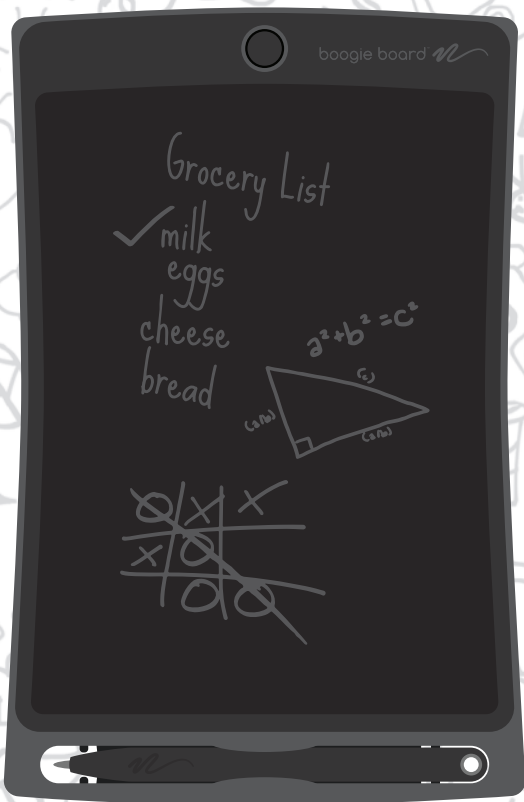 boogie board
Grocery List
milk
eggs
cheese
bread
a²+b²=c²
(c)
X X
O
X O
O O